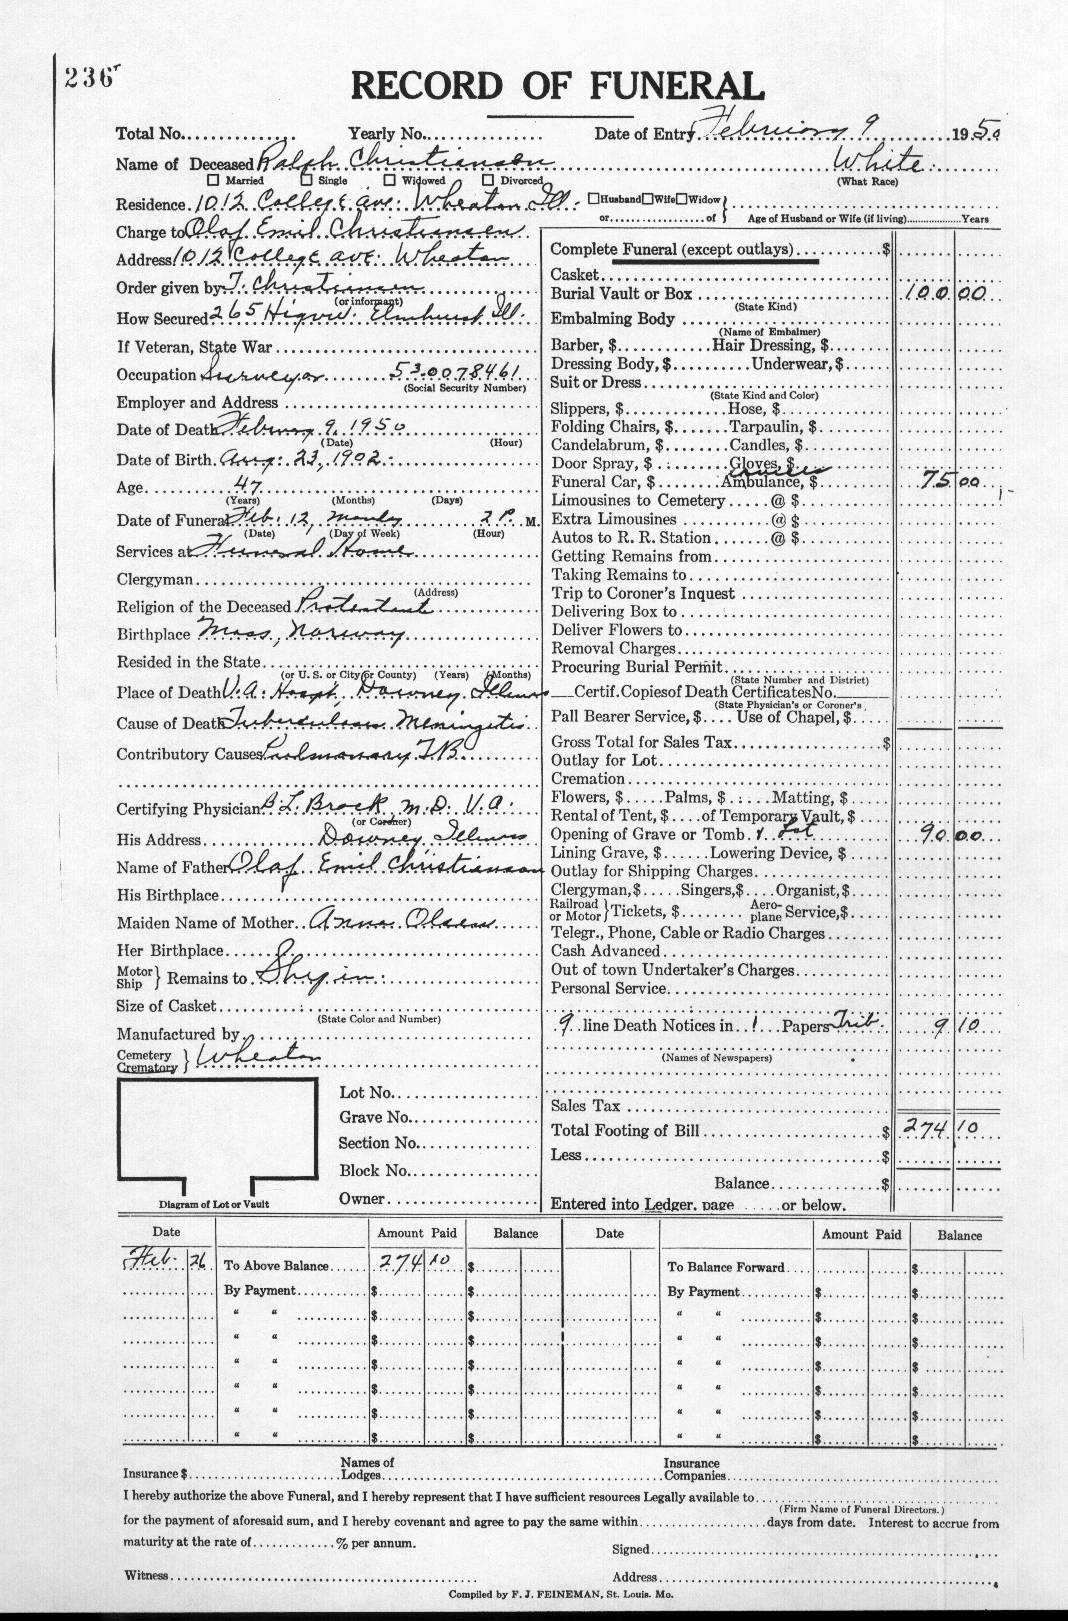 236
RECORD OF FUNERAL
Total No. Yearly No. Date of Entry February 9 1950
Name of Deceased Ralph Christiansen White
Married Single Widowed Divorced (What Race)
Residence 1012 College ave. Wheaton Ill. Husband Wife Widow
or of Age of Husband or Wife (if living) Years
Charge to Olaf Emil Christiansen
Address 1012 College ave. Wheaton
Order given by T. Christiansen
(or informant)
How Secured 265 Elmhurst Ill.
If Veteran, State War
Occupation Surveyor 530078461
(Social Security Number)
Employer and Address
Date of Death February 9, 1950
(Date) (Hour)
Date of Birth Aug. 23, 1902
Age 47
(Years) (Months) (Days)
Date of Funeral Feb. 12, Monday 2 P. M.
(Date) (Day of Week) (Hour)
Services at Funeral Home
Clergyman
(Address)
Religion of the Deceased Protestant
Birthplace Moss, Norway
Resided in the State
(or U. S. or City or County) (Years) (Months)
Place of Death V.A. Hospt, Downey, Illinois
Cause of Death Tuberculous Meningitis
Contributory Causes Pulmonary T.B.
Certifying Physician B L. Brock, M.D. V.A.
(or Coroner)
His Address Downey, Illinois
Name of Father Olaf Emil Christiansen
His Birthplace
Maiden Name of Mother Anna Olsen
Her Birthplace
Motor
Ship } Remains to Ship in.
Size of Casket
(State Color and Number)
Manufactured by
Cemetery
Crematory } Wheaton
Lot No.
Grave No.
Section No.
Block No.
Owner
Diagram of Lot or Vault
Complete Funeral (except outlays) $
Casket
Burial Vault or Box 100 00
(State Kind)
Embalming Body
(Name of Embalmer)
Barber, $ Hair Dressing, $
Dressing Body, $ Underwear, $
Suit or Dress
(State Kind and Color)
Slippers, $ Hose, $
Folding Chairs, $ Tarpaulin, $
Candelabrum, $ Candles, $
Door Spray, $ Gloves, $
services
Funeral Car, $ Ambulance, $ 75 00
Limousines to Cemetery @ $
Extra Limousines @ $
Autos to R. R. Station @ $
Getting Remains from
Taking Remains to
Trip to Coroner's Inquest
Delivering Box to
Deliver Flowers to
Removal Charges
Procuring Burial Permit
(State Number and District)
Certif. Copies of Death Certificates No.
(State Physician's or Coroner's
Pall Bearer Service, $ Use of Chapel, $
Gross Total for Sales Tax $
Outlay for Lot
Cremation
Flowers, $ Palms, $ Matting, $
Rental of Tent, $ of Temporary Vault, $
Opening of Grave or Tomb & Lot 90 00
Lining Grave, $ Lowering Device, $
Outlay for Shipping Charges
Clergyman, $ Singers, $ Organist, $
Railroad
or Motor } Tickets, $ Aero-
plane Service, $
Telegr., Phone, Cable or Radio Charges
Cash Advanced
Out of town Undertaker's Charges
Personal Service
9 line Death Notices in 1 Papers Trib. 9 10
(Names of Newspapers)
Sales Tax
Total Footing of Bill $ 274 10
Less $
Balance $
Entered into Ledger, page or below.
Date Amount Paid Balance Date Amount Paid Balance
Feb. 26 To Above Balance 274 10 $ To Balance Forward $
By Payment $ $ By Payment $ $
" " $ $ " " $ $
" " $ $ " " $ $
" " $ $ " " $ $
" " $ $ " " $ $
" " $ $ " " $ $
" " $ $ " " $ $
Insurance $ Names of
Lodges Insurance
Companies
I hereby authorize the above Funeral, and I hereby represent that I have sufficient resources Legally available to
(Firm Name of Funeral Directors.)
for the payment of aforesaid sum, and I hereby covenant and agree to pay the same within days from date. Interest to accrue from
maturity at the rate of % per annum.
Signed
Witness Address
Compiled by F. J. FEINEMAN, St. Louis. Mo.